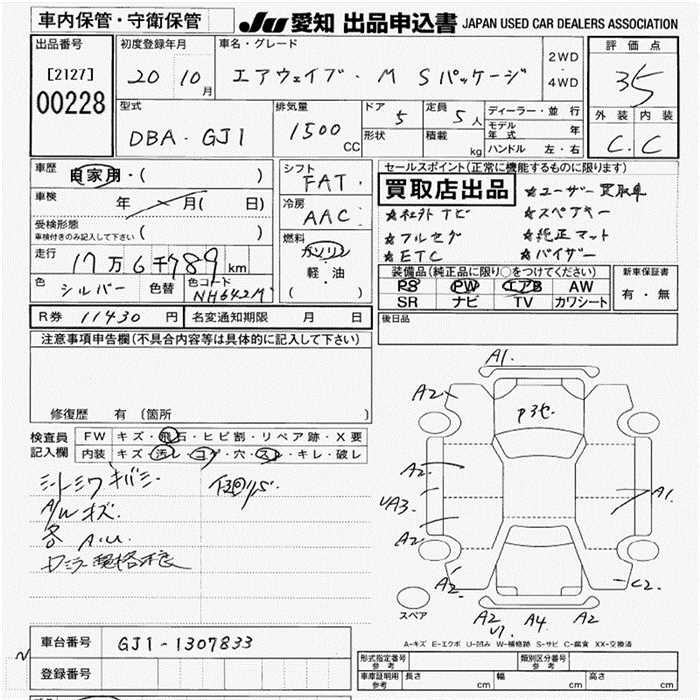 車内保管・守衛保管
JU 愛知 出品申込書 JAPAN USED CAR DEALERS ASSOCIATION
出品番号
[2127]
00228
初度登録年月
20 10月
車名・グレード
エアウェイブ・M Sパッケージ
2WD
・
4WD
評価点
3.5
外装 内装
C. C
型式
DBA - GJ1
排気量
1500 CC
ドア 5
形状
定員 5人
積載 kg
ディーラー・並行
モデル年式 年
ハンドル 左・右
車歴
自家用・( )
車検 年 月( 日)
受検形態
車検付きのみ記入して下さい ( )
走行
17万6千789km
色 シルバー 色替 色コード NH642M
シフト
FAT
冷房
AAC
燃料
ガソリン
軽・油
( )
セールスポイント(正常に機能するものに限ります)
買取店出品
☆ユーザー買取車
☆社外ナビ ☆スペアキー
☆フルセグ ☆純正マット
☆ETC ☆バイザー
装備品(純正品に限り○をつけてください)
PS PW エアB AW
SR ナビ TV カワシート
新車保証書
有・無
R券 11430円 名変通知期限 月 日
後日品
注意事項申告欄(不具合内容等は具体的に記入して下さい)
修復歴 有(箇所 )
検査員記入欄
FW キズ・飛石・ヒビ割・リペア跡・X要
内装 キズ・汚レ・コゲ・穴・スレ・キレ・破レ
シートシワ キバミ
下回りS
A/Wキズ
各 A.U.
A1.
A2
A2
UA3
A2
A2
A1
C2.
A2
U1
A4
A2
スペア
A-キズ E-エクボ U-凹み W-補修跡 S-サビ C-腐食 XX-交換済
車台番号 GJ1-1307833
登録番号
形式指定番号 参考
類別区分番号 参考
車庫証明用 参考 長さ cm 幅 cm 高さ cm